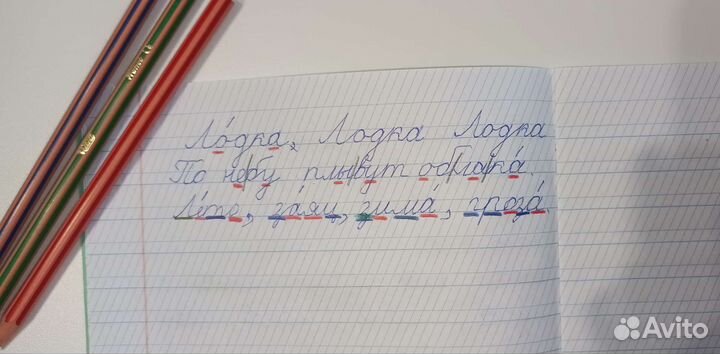 Ло́дка, Лодка Лодка
По не́бу плыву́т облака́.
Ле́то, за́яц, зима́, гроза́.
Avito